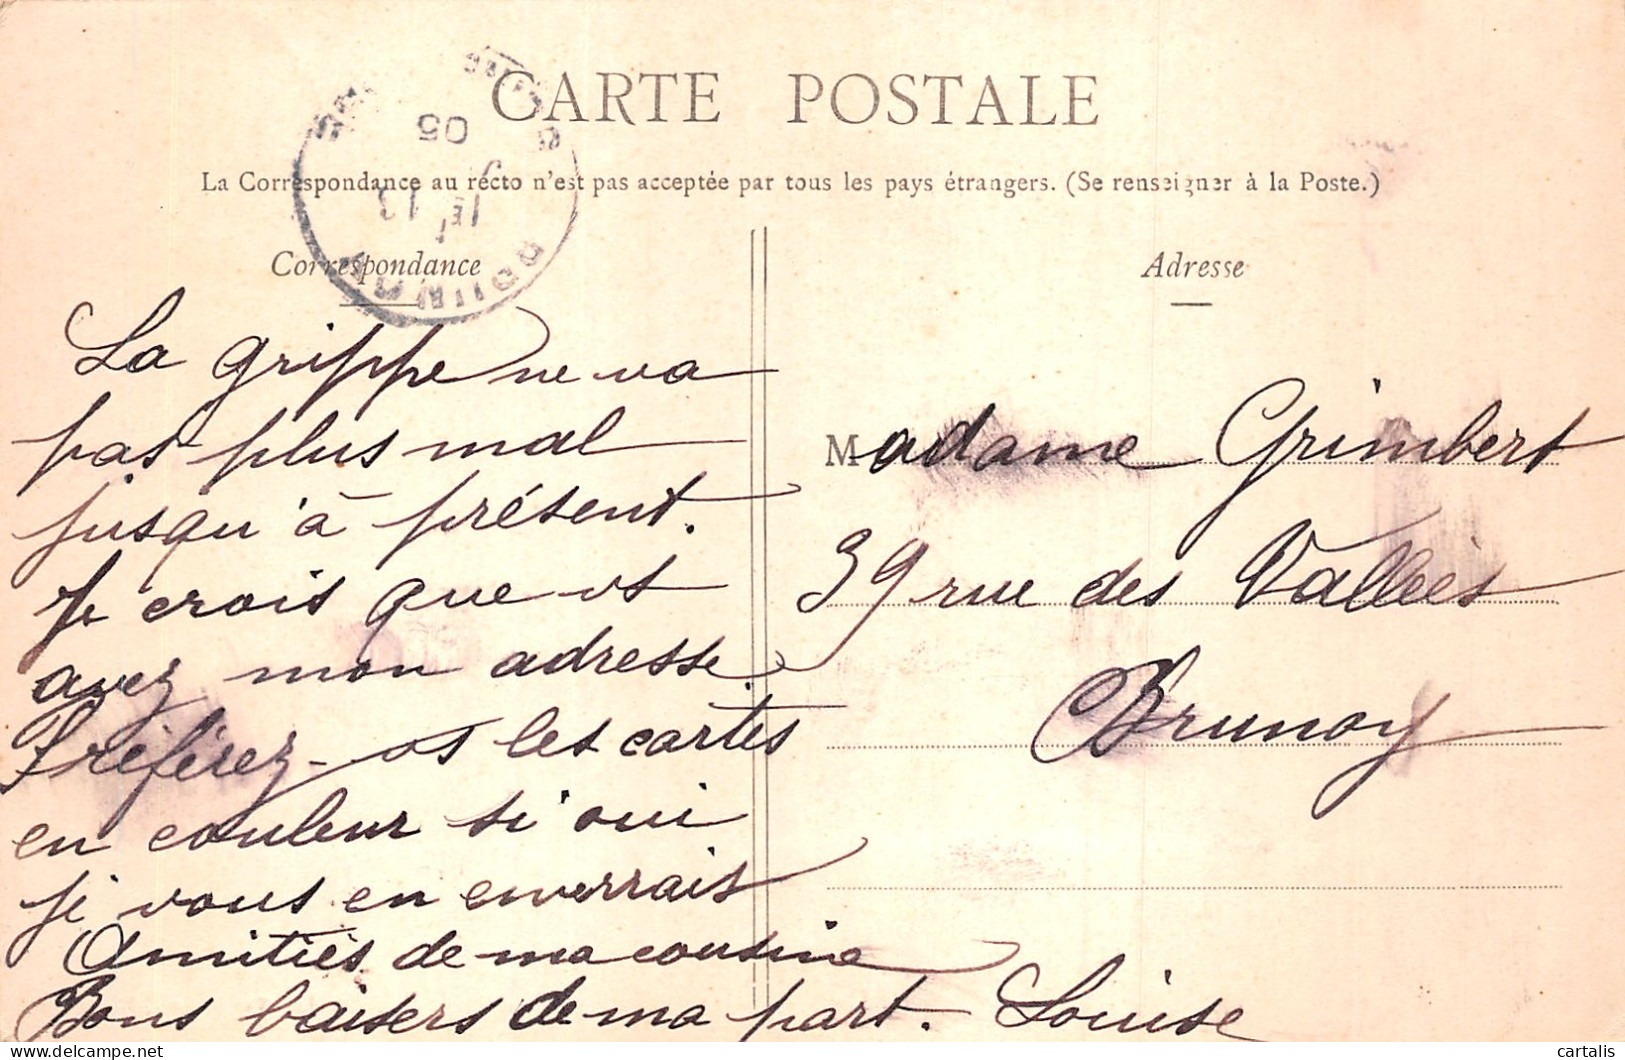 CARTE POSTALE
La Correspondance au recto n'est pas acceptée par tous les pays étrangers. (Se renseigner à la Poste.)
Correspondance
La grippe ne va
pas plus mal
jusqu'à présent.
Je crois que vs
avez mon adresse
Préférez-vs les cartes
en couleur si oui
je vous en enverrais
Amitiés de ma cousine
Bons baisers de ma part. Louise
Adresse
Madame Grimbert
39 rue des Vallées
Brunoy
05
13
cartalis